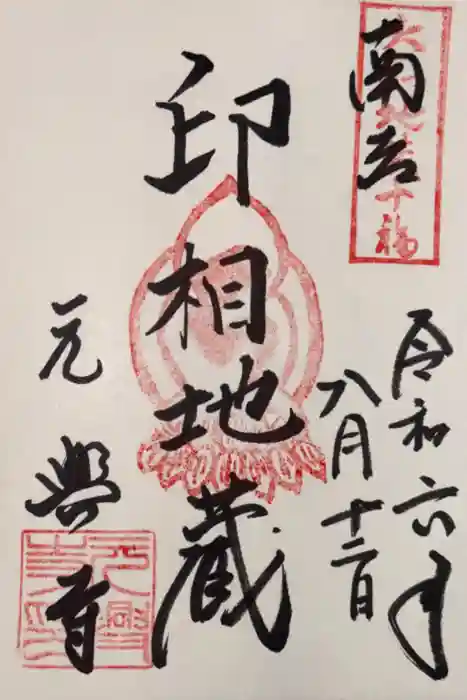 大和地蔵十福
南都
令和六年
八月十二日
印相地蔵
元興寺